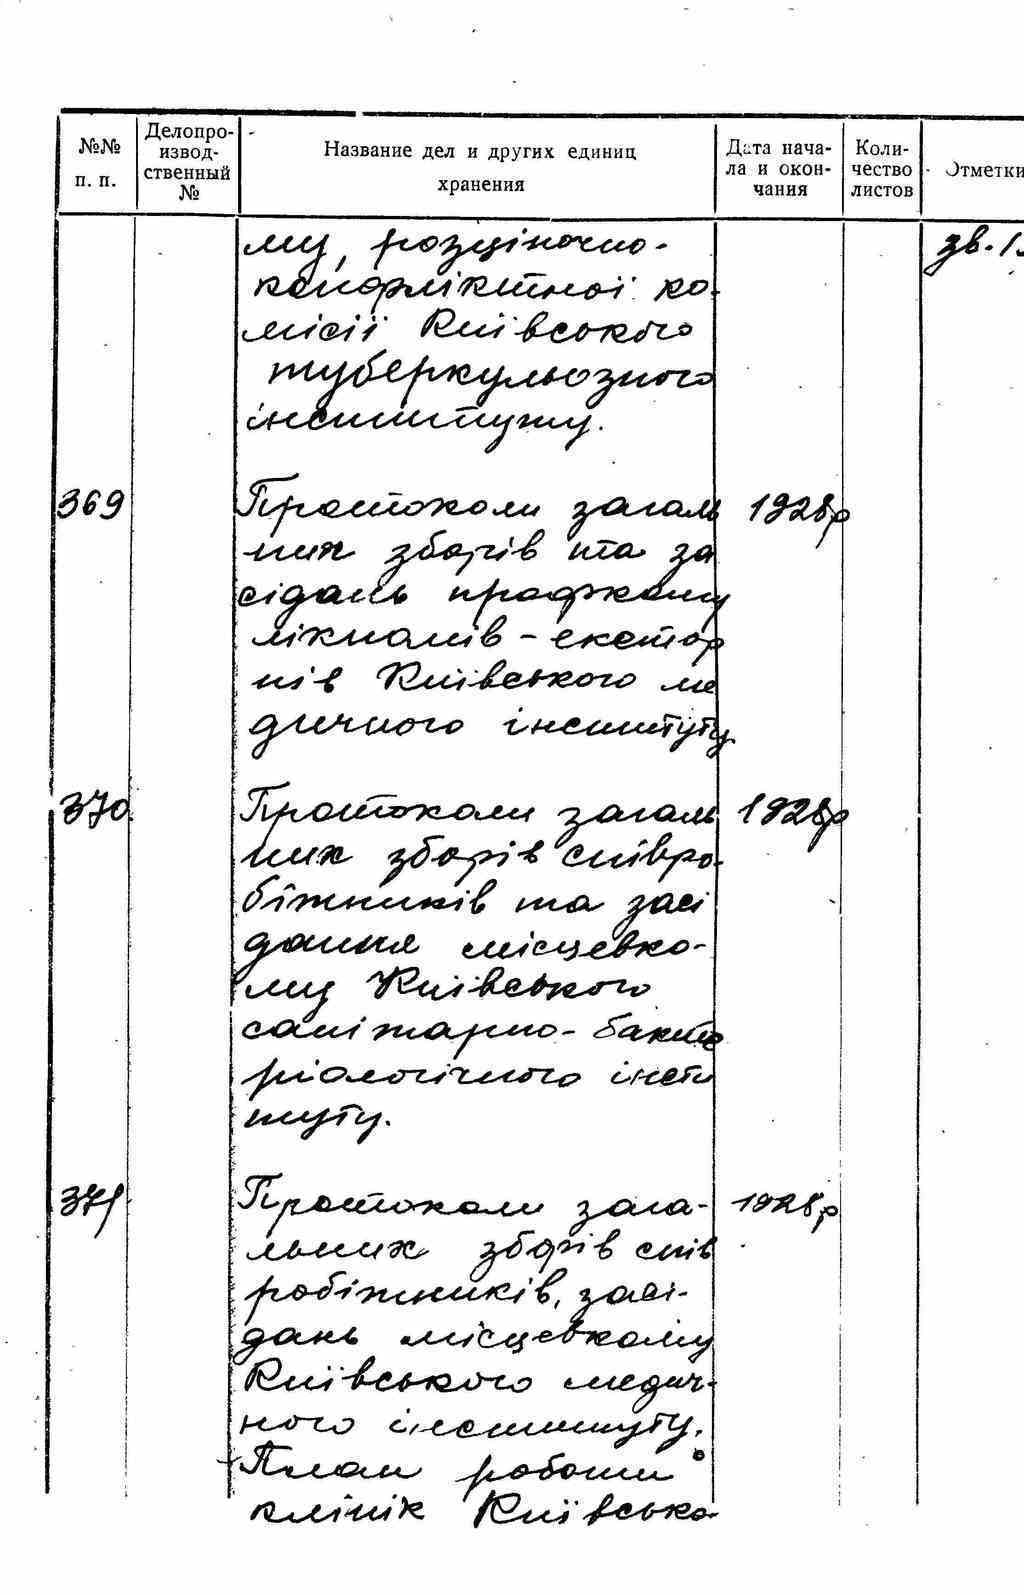 №№ п. п.
Делопро-
извод-
ственный
№
Название дел и других единиц
хранения
Дата нача-
ла и окон-
чания
Коли-
чество
листов
Отметки
му, розціночно-
конфліктної ко-
місії Київського
туберкульозного
інституту.
зв. 1.
369
Протоколи загаль
них зборів та за
сідань профкому
лікпомів - екстер
нів Київського ме
дичного інституту
1928р
370
Протоколи загаль
них зборів співро-
бітників та засі
дання місцевко-
му Київського
санітарно-бакте
ріологічного інсти
туту.
1928р
371
Протоколи зага-
льних зборів спів
робітників, засі-
дань місцевкому
Київського медич-
ного інституту.
План роботи
клінік Київсько-
1928р